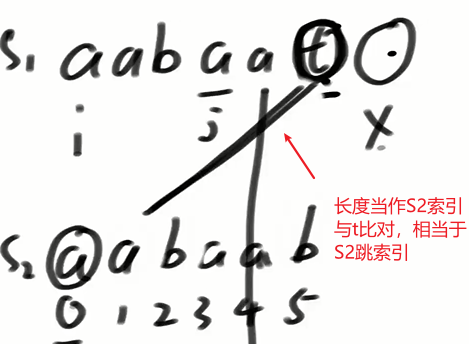 S₁ a a b a a t .
i j x
长度当作S2索引
与t比对，相当于
S2跳索引
S₂ a a b a a b
0 1 2 3 4 5